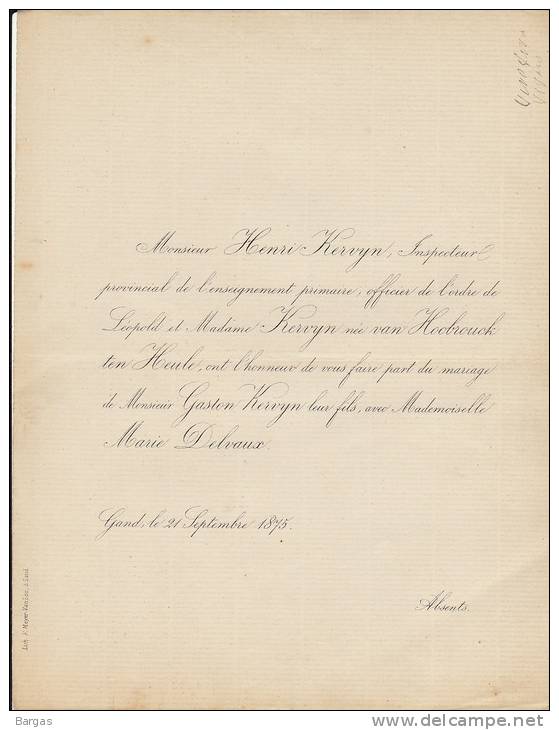 Monsieur Henri Kervyn, Inspecteur
provincial de l'enseignement primaire, officier de l'ordre de
Léopold et Madame Kervyn née van Hoobrouck
ten Heule, ont l'honneur de vous faire part du mariage
de Monsieur Gaston Kervyn leur fils, avec Mademoiselle
Marie Delvaux.
Gand, le 21 Septembre 1875.
Absents.
Lith. F. Meyer-Van Loo, à Gand.
Bargas
delcampe.net